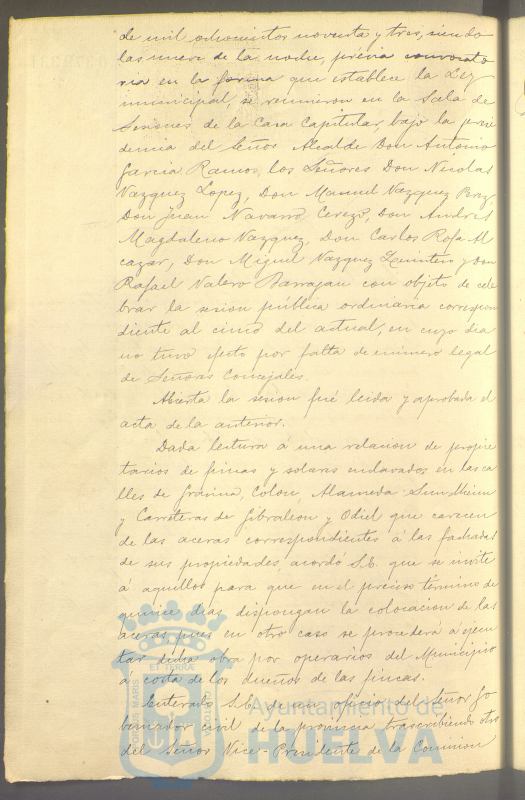 de mil ochocientos noventa y tres, siendo
las nueve de la noche, prévia convocato
ria en la forma que establece la Ley
municipal, se reunieron en la Sala de
Sesiones de la Casa Capitular bajo la presi
dencia del Señor Alcalde Don Antonio
Garcia Ramos, los Señores Don Nicolas
Vazquez Lopez, Don Manuel Vazquez Perez,
Don Juan Navarro Cerezo, Don Andres
Magdaleno Vazquez, Don Carlos Rofa Al
cazar, Don Miguel Vazquez Quintero y Don
Rafael Valero Barragan con objeto de cele
brar la sesion pública ordinaria correspon
diente al cinco del actual, en cuyo dia
no tuvo efecto por falta de número legal
de Señores Concejales.
Abierta la sesion fué leida y aprobada el
acta de la anterior.
Dada lectura á una relacion de propie
tarios de fincas y solares enclavados en las ca
lles de Gravina, Colon, Alameda
y Carreteras de Gibraleon y Odiel que carecen
de las aceras correspondientes á las fachadas
de sus propiedades, acordó S.E. que se invite
á aquellos para que en el preciso término de
quince dias dispongan la colocacion de las
aceras pues en otro caso se procederá á ejecu
tar dicha obra por operarios del Municipio
á costa de los dueños de las fincas.
Enterado S.E. de un oficio del Señor Go
bernador civil de la provincia trascribiendo otro
del Señor Vice-Presidente de la Comision
PORTUS MARIS ET TERRAE CUSTODIO
Ayuntamiento de
HUELVA